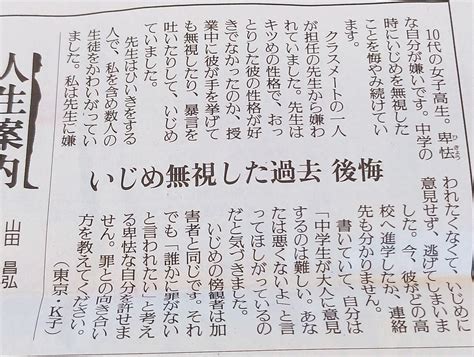 人生案内
山田 昌弘
いじめ無視した過去 後悔
10代の女子高生。卑怯
ひきょう
な自分が嫌いです。中学の
時にいじめを無視した
ことを悔やみ続けてい
ます。
クラスメートの一人
が担任の先生から嫌わ
れていました。先生は
キツめの性格で、おっ
とりした彼の性格が好
きでなかったのか、授
業中に彼が手を挙げて
も無視したり、暴言を
吐いたりして、いじめ
ていました。
先生はひいきをする
人で、私を含め数人の
生徒をかわいがってい
ました。私は先生に嫌
われたくなくて、いじめに
意見せず、逃げてしまいま
した。今、彼がどの高
校へ進学したか、連絡
先も分かりません。
書いていて、自分は
「中学生が大人に意見
するのは難しい。あな
たは悪くないよ」と言
ってほしがっているの
だと気づきました。
いじめの傍観者は加
害者と同じです。それ
でも「誰かに罪がない
と言われたい」と考え
る卑怯な自分を許せま
せん。罪との向き合い
方を教えてください。
(東京・K子)